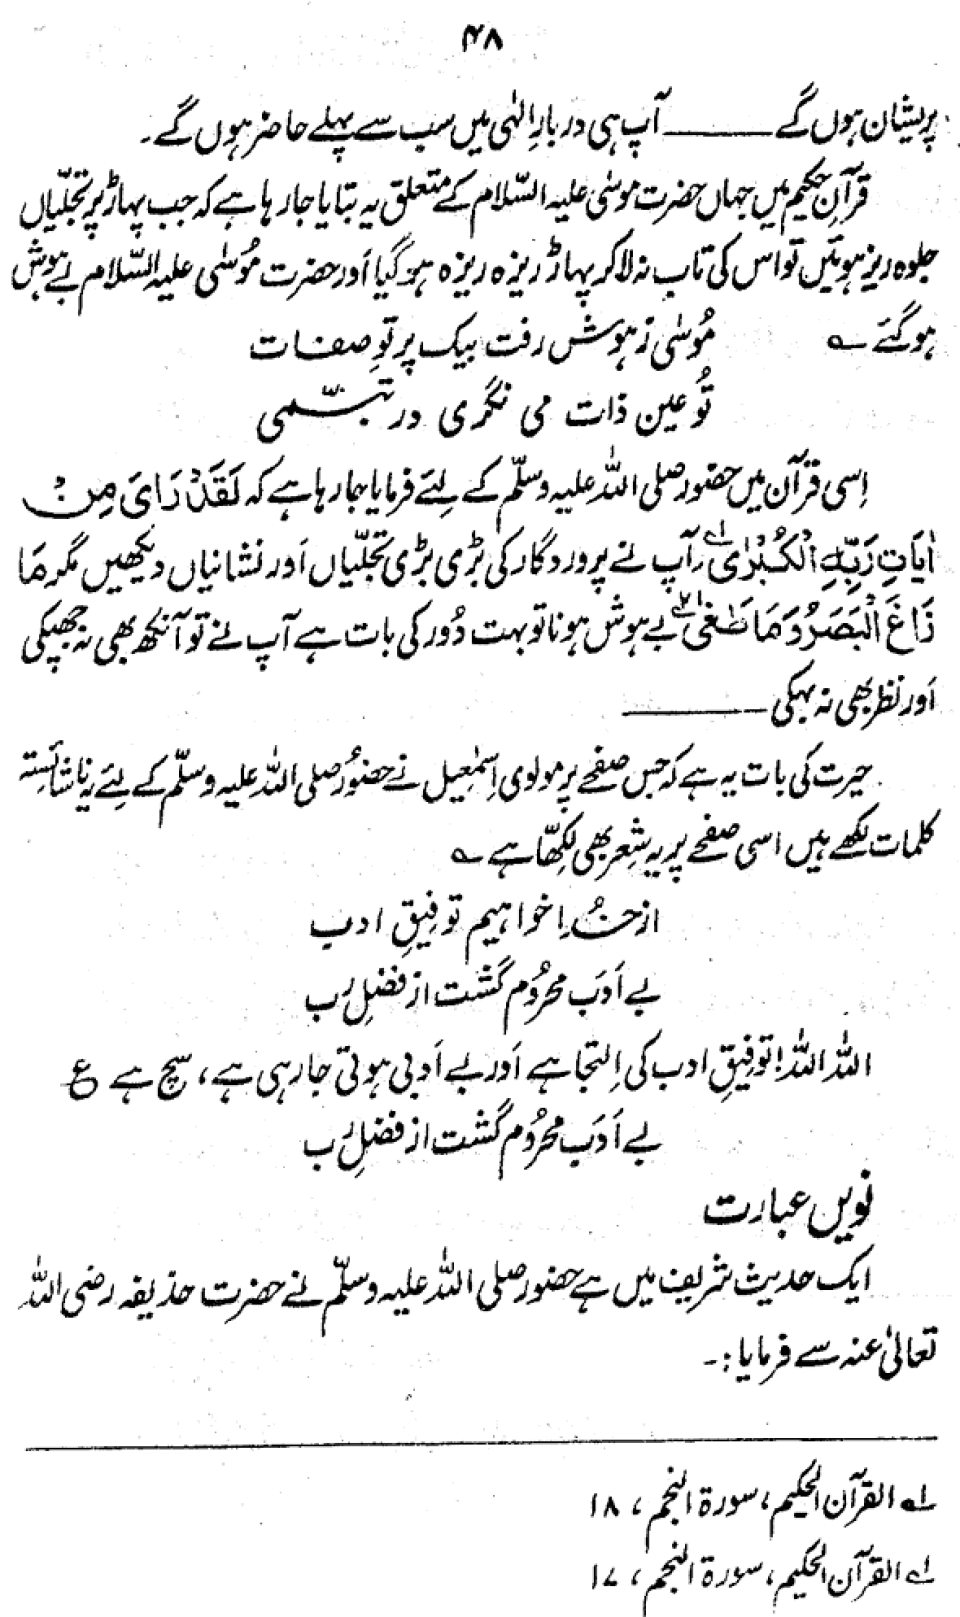 ۴۸
پریشان ہوں گے ــــــــ آپ ہی دربارِ الٰہی میں سب سے پہلے حاضر ہوں گے۔
قرآنِ حکیم میں جہاں حضرت موسٰی علیہ السّلام کے متعلق یہ بتایا جا رہا ہے کہ جب پہاڑ پر تجلّیاں
جلوہ ریز ہوئیں تو اس کی تاب نہ لا کر پہاڑ ریزہ ریزہ ہو گیا اَور حضرت مُوسٰی علیہ السّلام بے ہوش
ہو گئے ؎
مُوسٰی ز ہوش رفت بیک پرتوِ صفات
تُو عین ذات می نگری در تبسّمی
اِسی قرآن میں حضور صلی اللہ علیہ وسلّم کے لئے فرمایا جا رہا ہے کہ لَقَدْ رَاٰی مِنْ
اٰیَاتِ رَبِّہِ الْکُبْرٰی؂۱ آپ نے پروردگار کی بڑی بڑی تجلّیاں اَور نشانیاں دیکھیں مگر مَا
زَاغَ الْبَصَرُ وَمَا طَغٰی؂۲ بے ہوش ہونا تو بہت دُور کی بات ہے آپ نے تو آنکھ بھی نہ جھپکی
اَور نظر بھی نہ بہکی ــــــــ
حیرت کی بات یہ ہے کہ جس صفحے پر مولوی اِسمٰعیل نے حضورُ صلی اللہ علیہ وسلّم کے لئے یہ ناشائستہ
کلمات لکھے ہیں اسی صفحے پر یہ شِعر بھی لکھّا ہے ؎
از خُدا خواہیم توفیقِ ادب
بے اَدَب محرُوم گشت از فضلِ رَب
اللہ اللہ! توفیقِ ادب کی اِلتجا ہے اَور بے اَدبی ہوتی جا رہی ہے، سچ ہے ع
بے اَدَب محرُوم گشت از فضلِ رَب
نویں عبارت
ایک حدیث شریف میں ہے حضور صلی اللہ علیہ وسلّم نے حضرت حذیفہ رضی اللہ
تعالیٰ عنہ سے فرمایا :۔
؂۱ القرآن الحکیم، سورۃ النجم، ۱۸
؂۱ القرآن الحکیم، سورۃ النجم، ۱۷